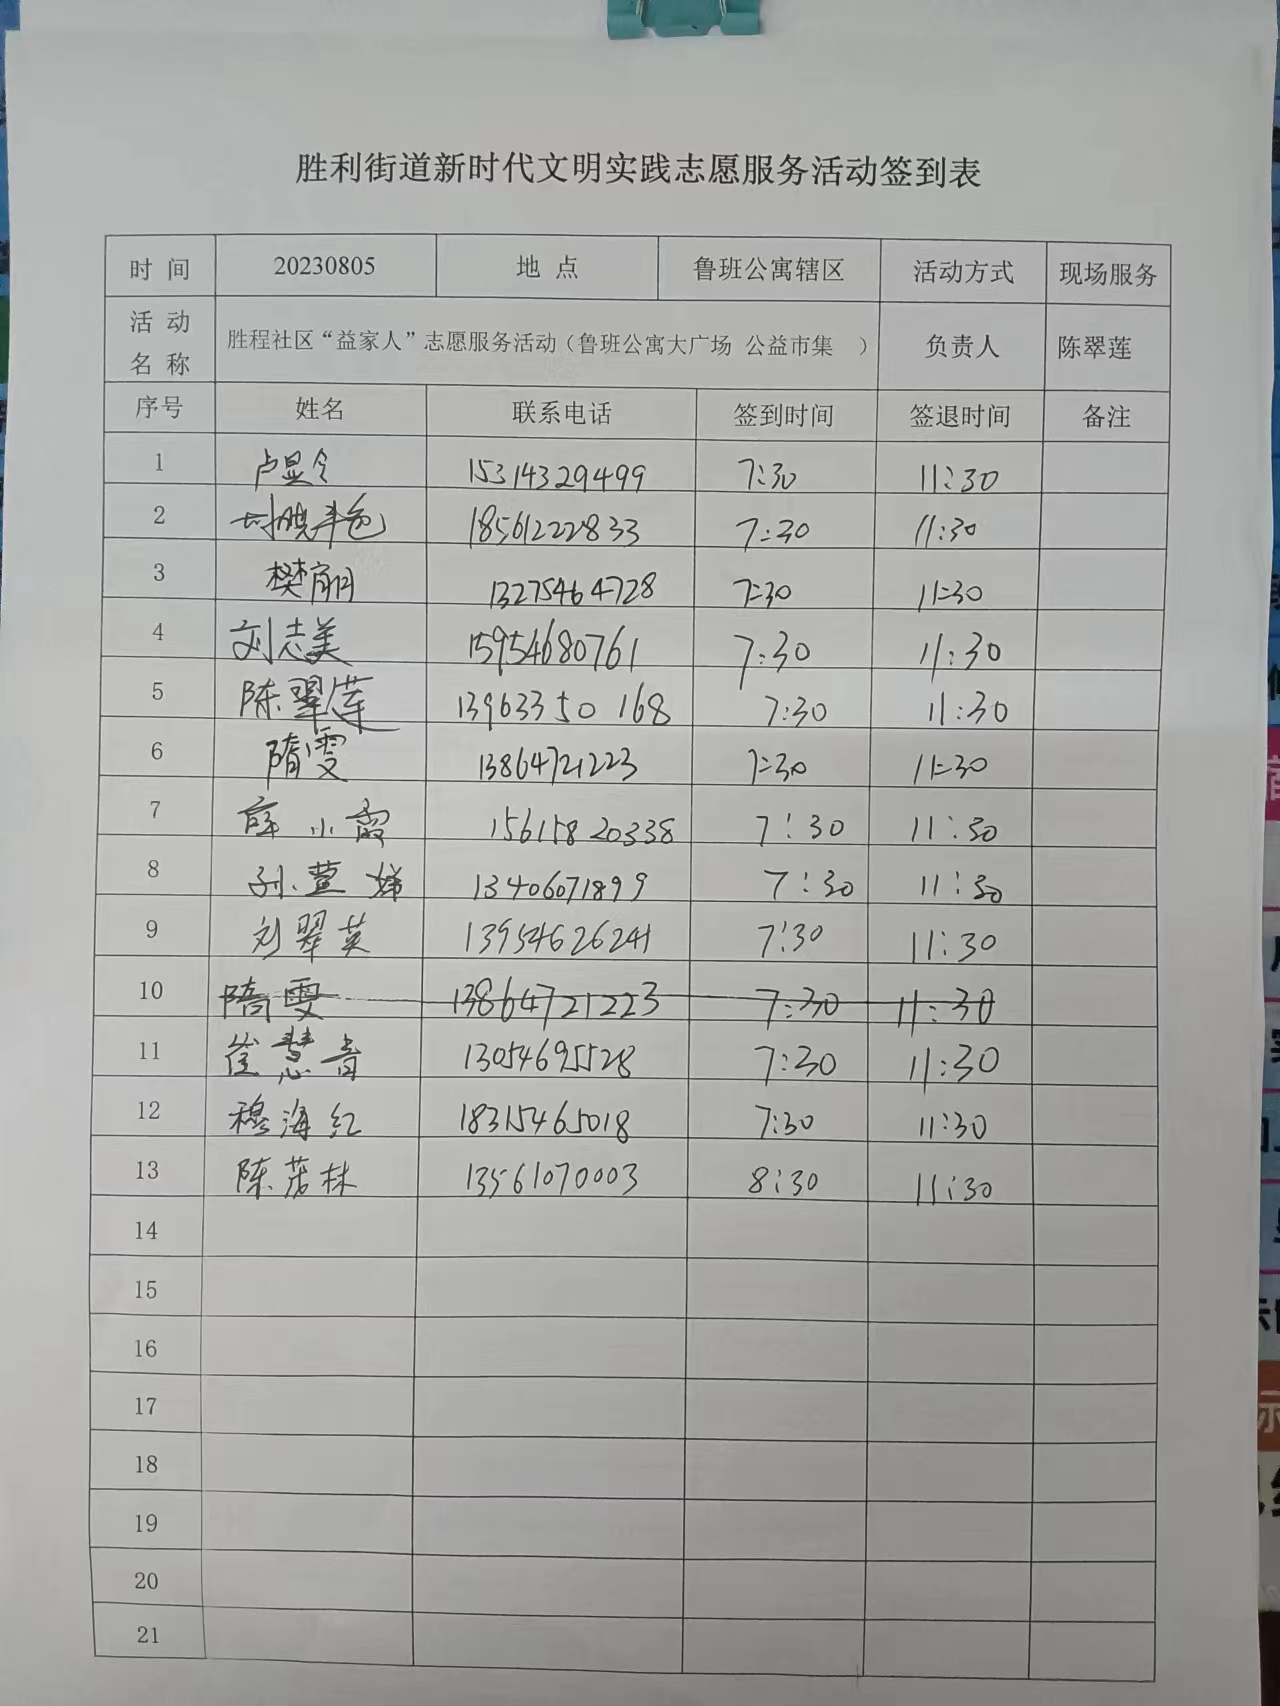 胜利街道新时代文明实践志愿服务活动签到表
时 间 20230805 地 点 鲁班公寓辖区 活动方式 现场服务
活 动 名 称 胜程社区“益家人”志愿服务活动（鲁班公寓大广场 公益市集 ） 负责人 陈翠莲
序号 姓名 联系电话 签到时间 签退时间 备注
1 卢显令 15314329499 7:30 11:30
2 18561222833 7:30 11:30
3 樊 13275464728 7:30 11:30
4 刘志美 15954680761 7:30 11:30
5 陈翠莲 13963350168 7:30 11:30
6 隋雯 13864721223 7:30 11:30
7 薛小霞 15615820338 7:30 11:30
8 孙萱娣 13406071899 7:30 11:30
9 刘翠英 13954626241 7:30 11:30
10 隋雯 13864721223 7:30 11:30
11 崔慧青 13054695528 7:30 11:30
12 穆海红 18315465018 7:30 11:30
13 陈若林 13561070003 8:30 11:30
14
15
16
17
18
19
20
21